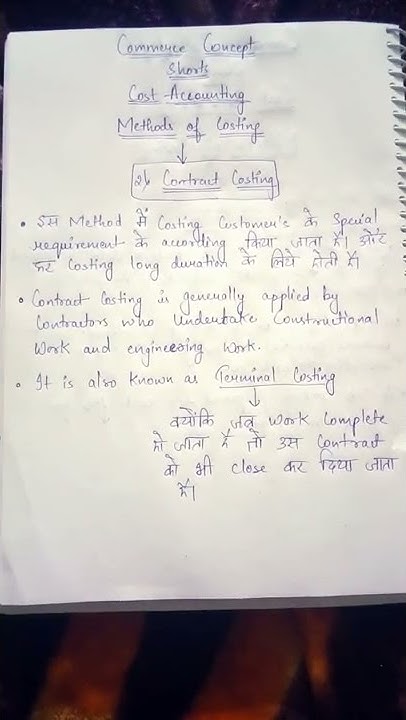 Commerce Concept
Shorts
Cost-Accounting
Methods of Costing
↓
2) Contract Costing
• इस Method में Costing Customer's के Special
requirement के according किया जाता है। और
यह Costing long duration के लिये होती है।
• Contract Costing is generally applied by
Contractors who undertake Constructional
Work and engineering work.
• It is also known as Terminal Costing
↓
क्योंकि जब work complete
हो जाता है तो उस Contract
को भी close कर दिया जाता
है।